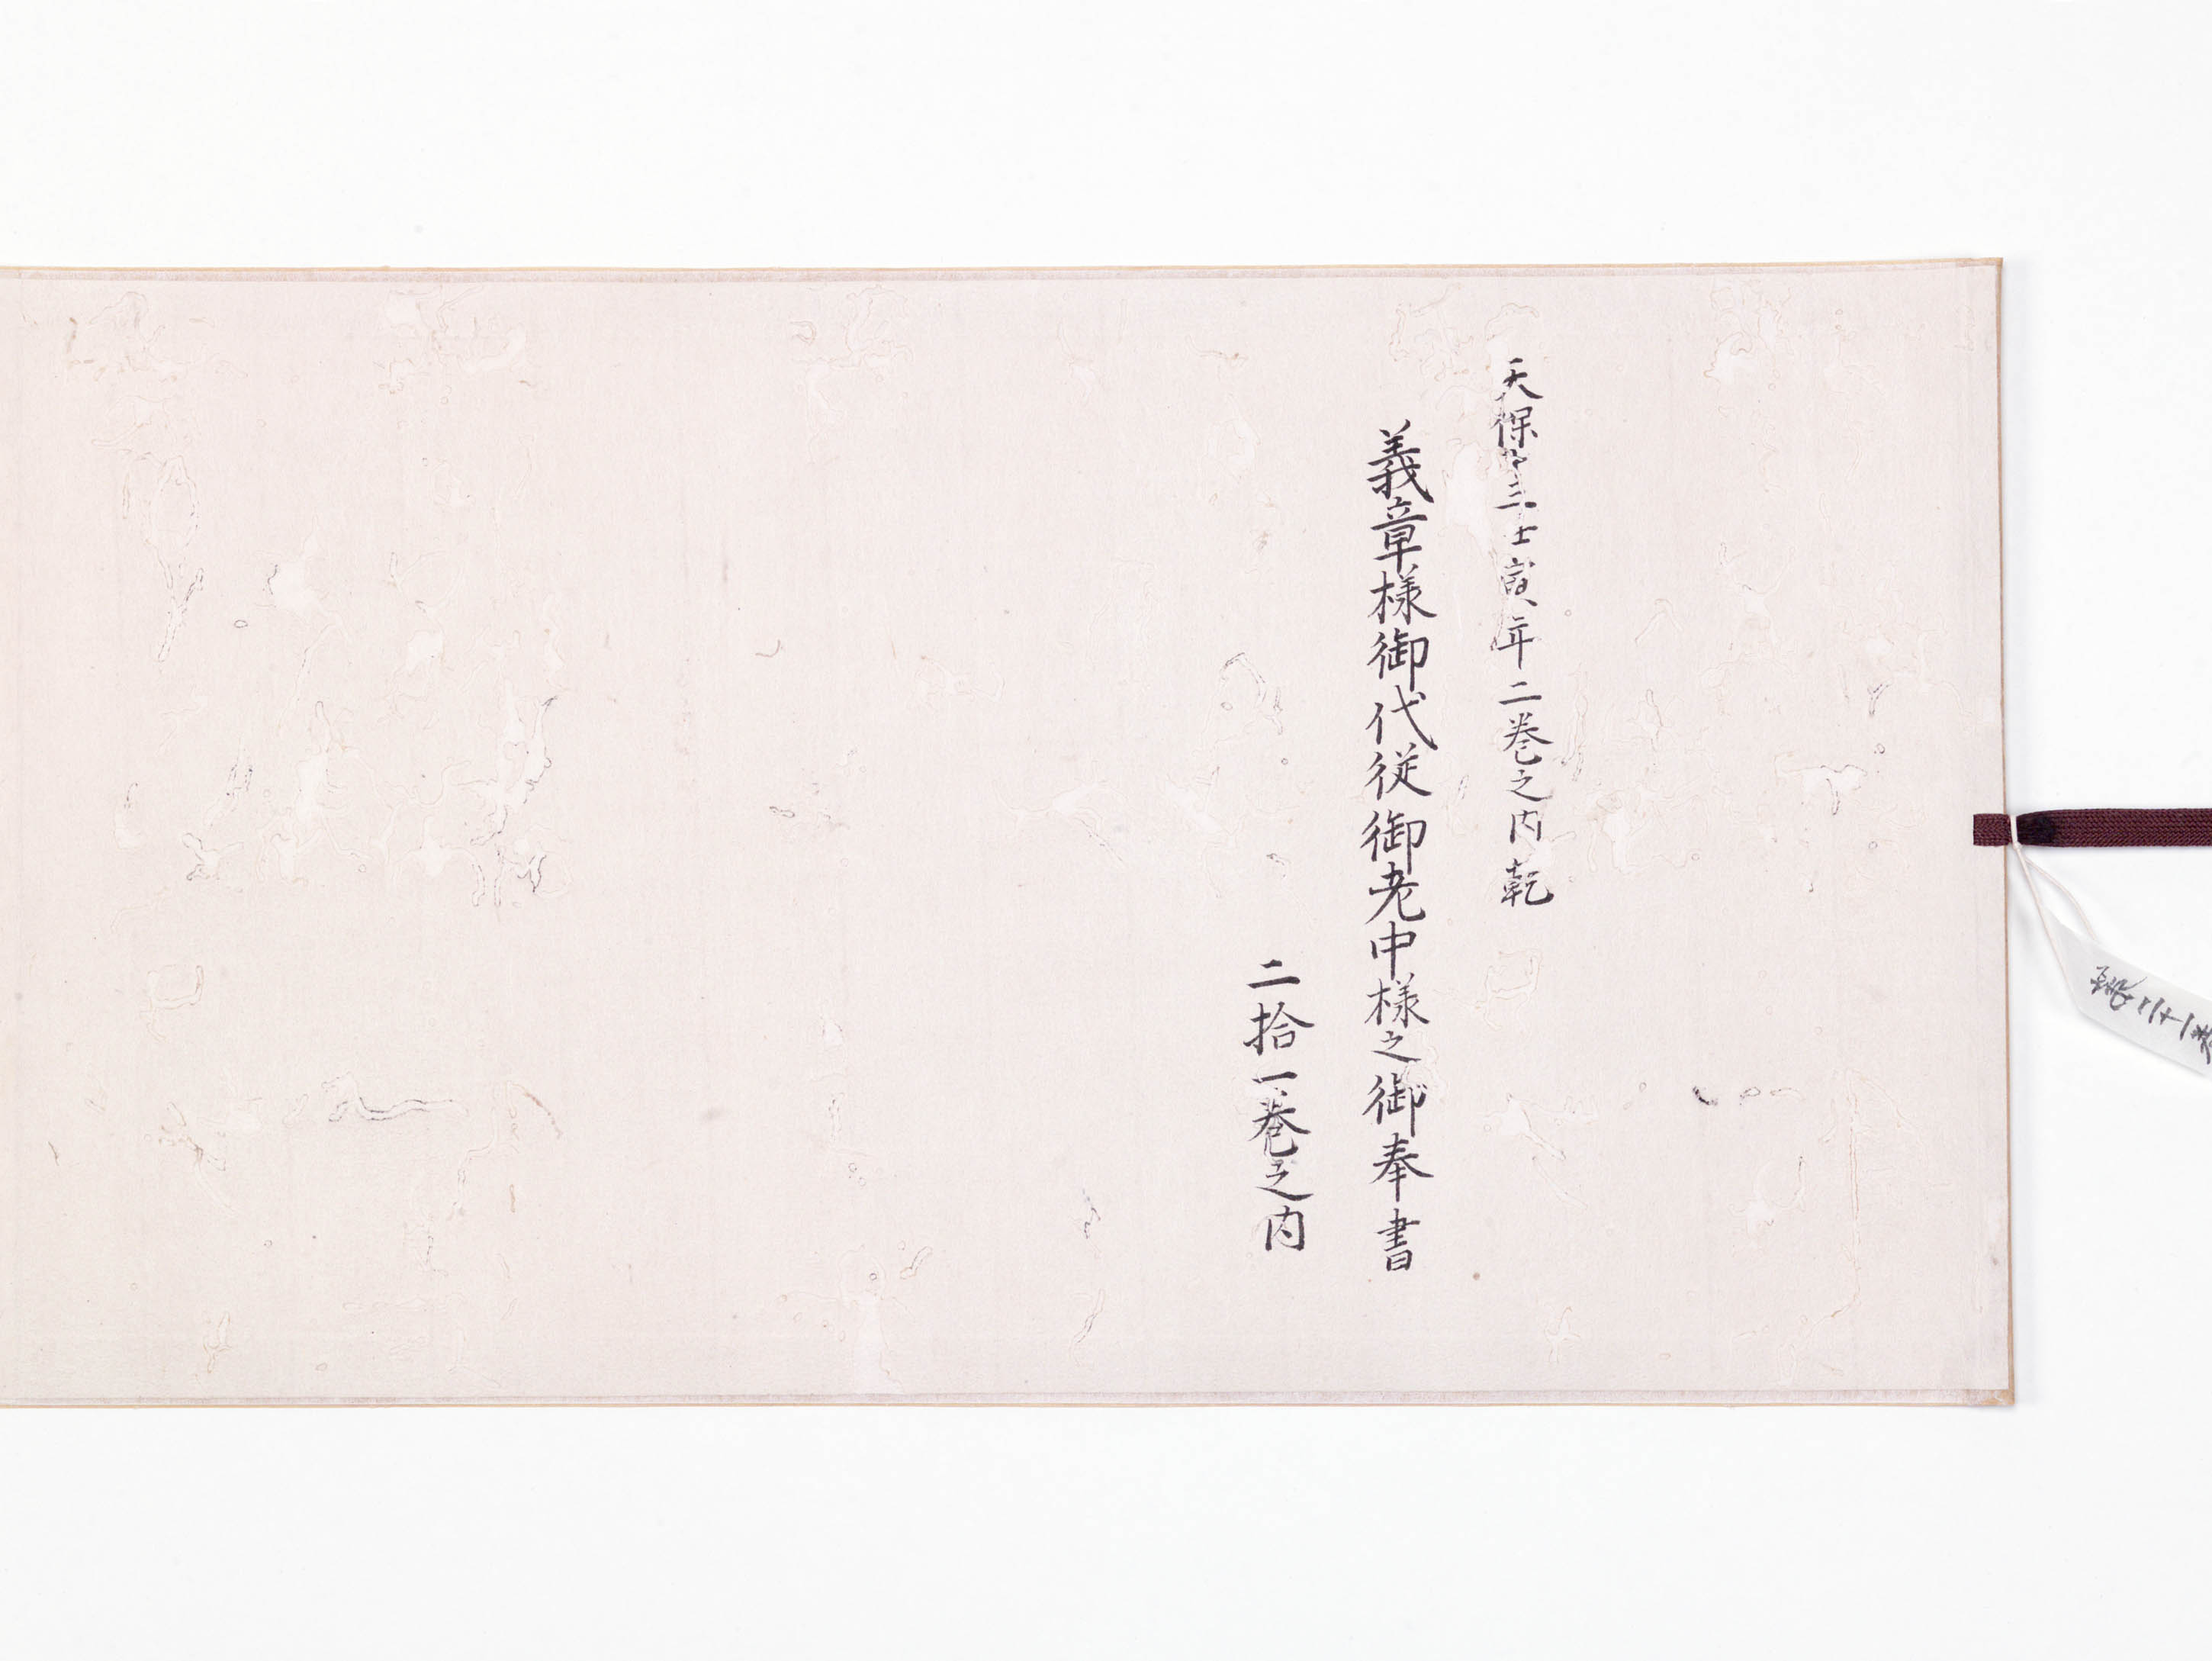 天保三壬寅年二巻之内乾
義章様御代従御老中様之御奉書
二拾一巻之内
二十一